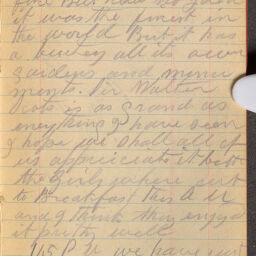 it was the finest in
the world But it has
a beautey all its own
gardens and monu
ments. Sir Walter
Scots is as grand as
eneything I have seen
I hope we shall all of
us appreciate it both
the Girls where out
to Breakfast this A M
and I think they enjoyed
it pretty well
P M we have just